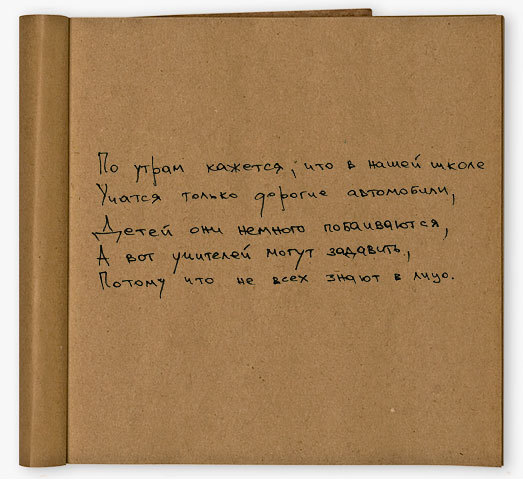 По утрам кажется, что в нашей школе
Учатся только дорогие автомобили,
Детей они немного побаиваются,
А вот учителей могут задавить,
Потому что не всех знают в лицо.